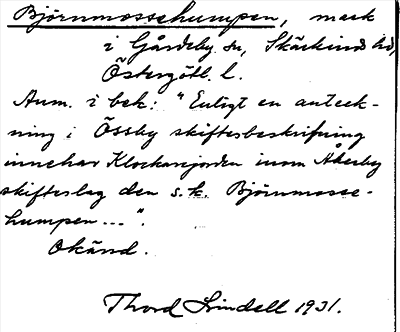 Björnmossehumpen, mark
i Gårdeby sn, Skärkinds hd,
Östergötl. l.
Anm. i bek: "Enligt en anteck-
ning i Össby skiftesbeskrifning
innehar Klockarejorden inom Åkerby
skifteslag den s.k. Björnmosse-
humpen...".
Okänd.
Thord Lindell 1931.